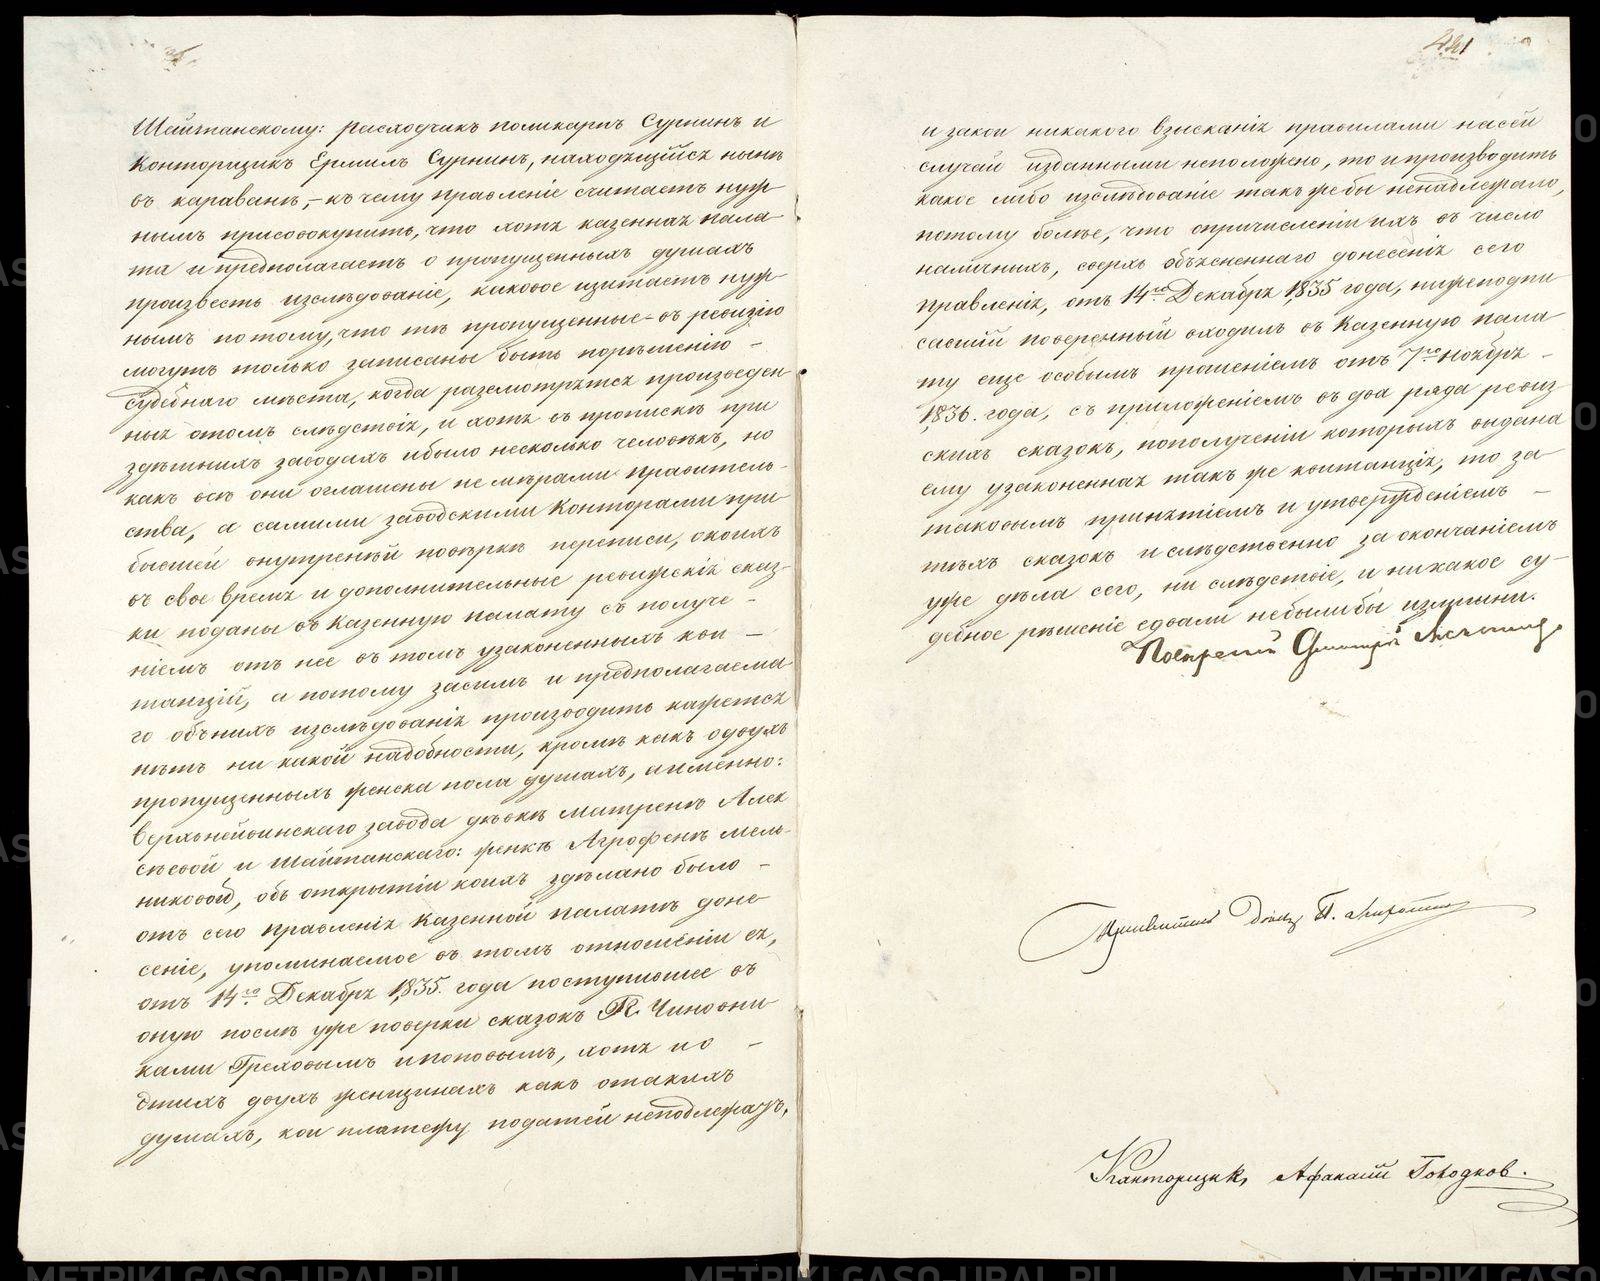 Шайтанскому: расходчикъ поликарпъ Сурнинъ и
Конторщикъ Ермилъ Сурнинъ, находящийся нынѣ
въ караванѣ, – къ чему правленіе считаетъ нуж
нымъ присовокупить, что хотя казенная пала
та и предполагаетъ о пропущенныхъ душахъ
произвесть изслѣдованіе, каковое щитаетъ нуж
нымъ потому, что тѣ пропущенные въ ревизію
могутъ только записаны быть порѣшенію –
судебнаго мѣста, когда разсмотрятся произведен
ныя отомъ слѣдствія, и хотя въ пропискѣ при
здѣшнихъ заводахъ и было несколько человѣкъ, но
какъ всѣ они оглашены не мѣрами правитель-
ства, а самими заводскими Конторами при
бывшей внутренней повѣркѣ переписи, окоихъ
въ свое время и дополнительные ревижскія сказ-
ки поданы въ Казенную палату съ получе –
ніемъ отъ нее въ томъ узаконенныхъ кви –
танцій, а потому засимъ и предполагаема
го объ нихъ изслѣдованія производить кажется
нѣтъ ни какой надобности, кромѣ какъ одвухъ
пропущенныхъ женска пола душахъ, аименно:
Верхънейвинскаго завода дѣвкѣ матренѣ Алек
сѣевой и Шайтанскаго: женкѣ Агрофенѣ мель-
никовой, объ открытіи коихъ здѣлано было –
отъ сего правленія Казенной палатѣ доне
сеніе, упоминаемое въ томъ отношеніи ея,
отъ 14го Декабря 1835. года поступившее въ
оную послѣ уже поверки сказокъ Гг. Чиновни
ками Греховымъ и поповымъ, хотя и о –
этихъ двухъ женщинахъ какъ отакихъ
душахъ, кои платежу податей неподлежатъ,
441
и закои никакого взысканія правилами насей
случай изданными неположено, то и производить
какое либо изслѣдованіе такъ же бы ненадлежало,
потому болѣе, что опричисленіи ихъ въ число
наличнихъ, сверхъ объясненнаго донесенія сего
правленія, отъ 14го Декабря 1835 года, нижеподпи
савшій поверенный входилъ въ Казенную пала
ту еще особымъ прошеніемъ отъ 7го ноября –
1836. года, съ приложеніемъ въ два ряда ревиз
скихъ сказокъ, пополученіи которыхъ выдана
ему узаконенная такъ же квитанція, то за
таковымъ принятіемъ и утвержденіемъ –
тѣхъ сказокъ и слѣдственно за окончаніемъ
уже дѣла сего, ни слѣдствіе, и никакое су-
дебное рѣшеніе едвали небылибы излишни.
Поверенный Дмитрій
Конторщикъ Афанасій Голодков.